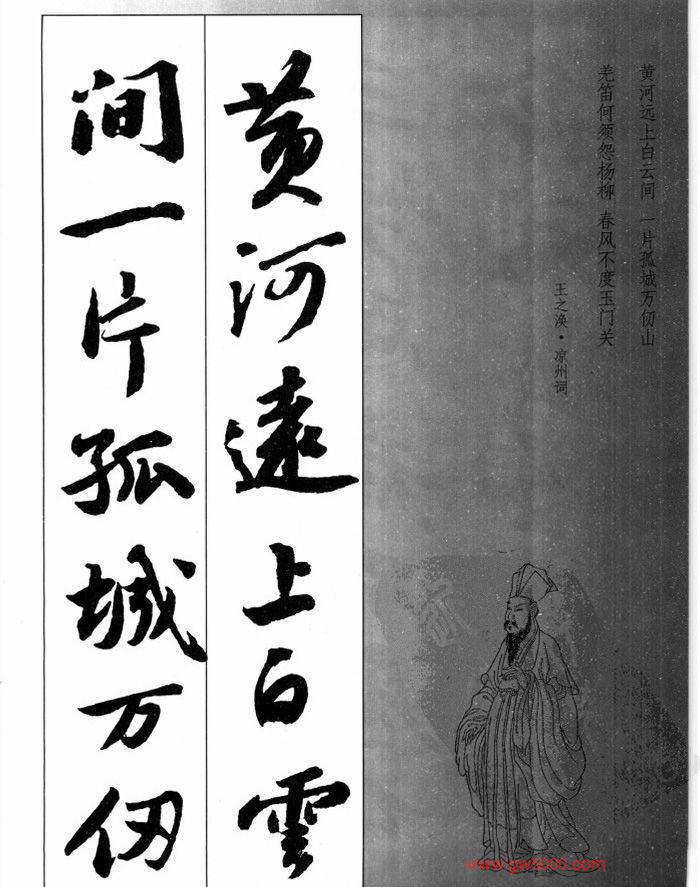 黄河远上白云间 一片孤城万仞山
羌笛何须怨杨柳 春风不度玉门关
王之涣·凉州词
黄河遠上白雲
间一片孤城万仞
www.gw5000.com